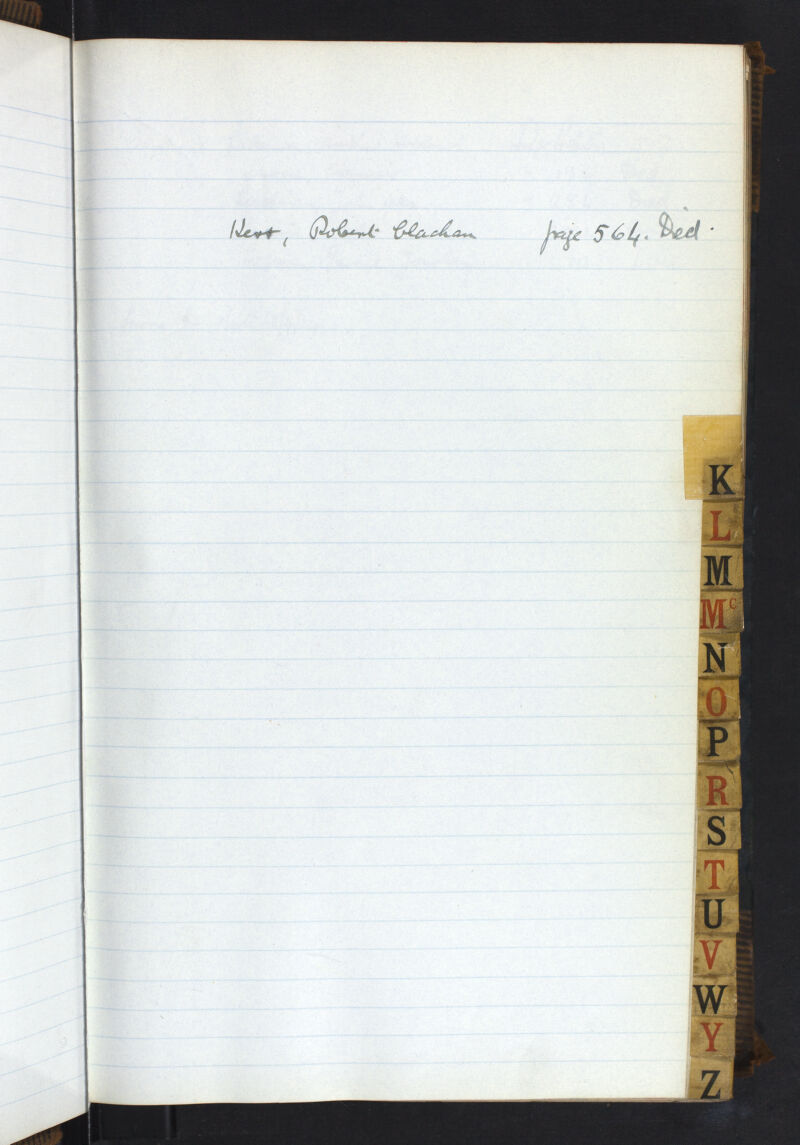 Kerr, Robert Clachan page 564. Died.
K
L
M
Mc
N
O
P
R
S
T
U
V
W
Y
Z